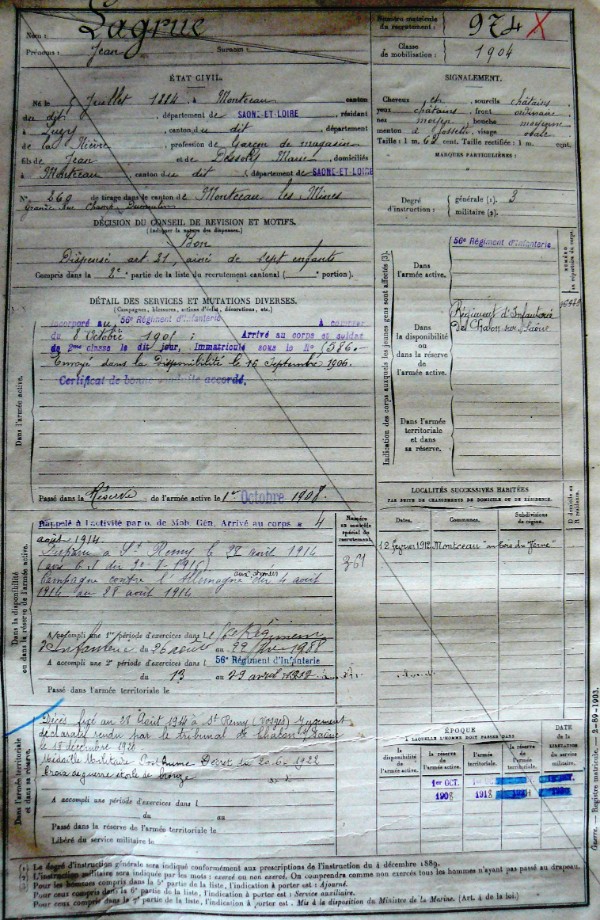 Nom : Lagrue
Prénoms : Jean Surnom :
Numéro matricule du recrutement : 974 X
Classe de mobilisation : 1904
ÉTAT CIVIL.
Né le 5 Juillet 1884, à Montceau, canton
du dit, département de SAONE-ET-LOIRE, résidant
à Luzy, canton du dit, département
de la Nièvre, profession de Garçon de magasin
fils de Jean et de Marie, domiciliés
à Montceau, canton du dit, département de SAONE-ET-LOIRE
N° 260 de tirage dans le canton de Montceau les Mines
SIGNALEMENT.
Cheveux ch. sourcils châtains
yeux châtains, front ordinaire
nez moyen, bouche moyenne
menton à fossette, visage ovale
Taille : 1 m. cent. Taille rectifiée : 1 m. cent.
MARQUES PARTICULIÈRES :
Degré d'instruction : générale (1). 3
militaire (2).
DÉCISION DU CONSEIL DE REVISION ET MOTIFS.
Bon
Dispensé art 21, aîné de sept enfants
Compris dans la 2e partie de la liste du recrutement cantonal ( portion).
DÉTAIL DES SERVICES ET MUTATIONS DIVERSES.
(Campagnes, blessures, actions d'éclat, décorations, etc.)
Dans l'armée active.
Incorporé au 56e Régiment d'Infanterie À compter
du 8 Octobre 1905 ; Arrivé au corps et soldat
de 2me classe le dit jour, Immatriculé sous le N° 1386.
Envoyé dans la disponibilité le 16 Septembre 1906.
Certificat de bonne conduite accordé.
Passé dans la Réserve de l'armée active le 1er Octobre 1908.
Indication des corps auxquels les jeunes gens sont affectés (3).
Dans l'armée active.
56e Régiment d'Infanterie
Dans la disponibilité ou dans la réserve de l'armée active.
Régiment d'Infanterie
de Chalon sur Saône
Dans l'armée territoriale et dans sa réserve.
Dans la disponibilité ou dans la réserve de l'armée active.
Rappelé à l'activité par o. de Mob. Gén. Arrivé au corps le 4
août 1914.
Disparu à St Remy le 28 août 1914
Campagne contre l'Allemagne du 4 août
1914 au 28 août 1914
Numéro au contrôle spécial du recrutement.
A accompli une 1re période d'exercices dans l
d'Infanterie du 26 août au
A accompli une 2e période d'exercices dans l 56e Régiment d'Infanterie
du 13 au 29 avril
Passé dans l'armée territoriale le
LOCALITÉS SUCCESSIVES HABITÉES
PAR SUITE DE CHANGEMENTS DE DOMICILE OU DE RÉSIDENCE.
Dates. Communes. Subdivisions de région. D domicile ou R résidence.
12 février 1912 Montceau "au Bois du Verne"
Dans l'armée territoriale et dans sa réserve.
Décès fixé au 28 Août 1914 à St Remy (Vosges) Jugement
déclaratif rendu par le tribunal de Chalon s/ Saône
le 13 décembre 1920
Médaille Militaire Posthume
Croix de guerre étoile de bronze
A accompli une période d'exercices dans l
du au
Passé dans la réserve de l'armée territoriale le
Libéré du service militaire le
ÉPOQUE
À LAQUELLE L'HOMME DOIT PASSER DANS
la disponibilité de l'armée active. la réserve de l'armée active. l'armée territoriale. la réserve de l'armée territoriale.
DATE DE LA LIBÉRATION DU SERVICE militaire.
1er OCT.
1908 1918
Guerre. — Registre matricule. — 2-89-1903.
(1) Le degré d'instruction générale sera indiqué conformément aux prescriptions de l'instruction du 4 décembre 1889.
(2) L'instruction militaire sera indiquée par les mots : exercé ou non exercé. On comprendra comme non exercés tous les hommes n'ayant pas passé au drapeau.
(3) Pour les hommes compris dans la 5e partie de la liste, l'indication à porter est : Ajourné.
Pour ceux compris dans la 6e partie de la liste, l'indication à porter est : Service auxiliaire.
Pour ceux compris dans la 7e partie de la liste, l'indication à porter est : Mis à la disposition du Ministre de la Marine. (Art. 4 de la loi.)